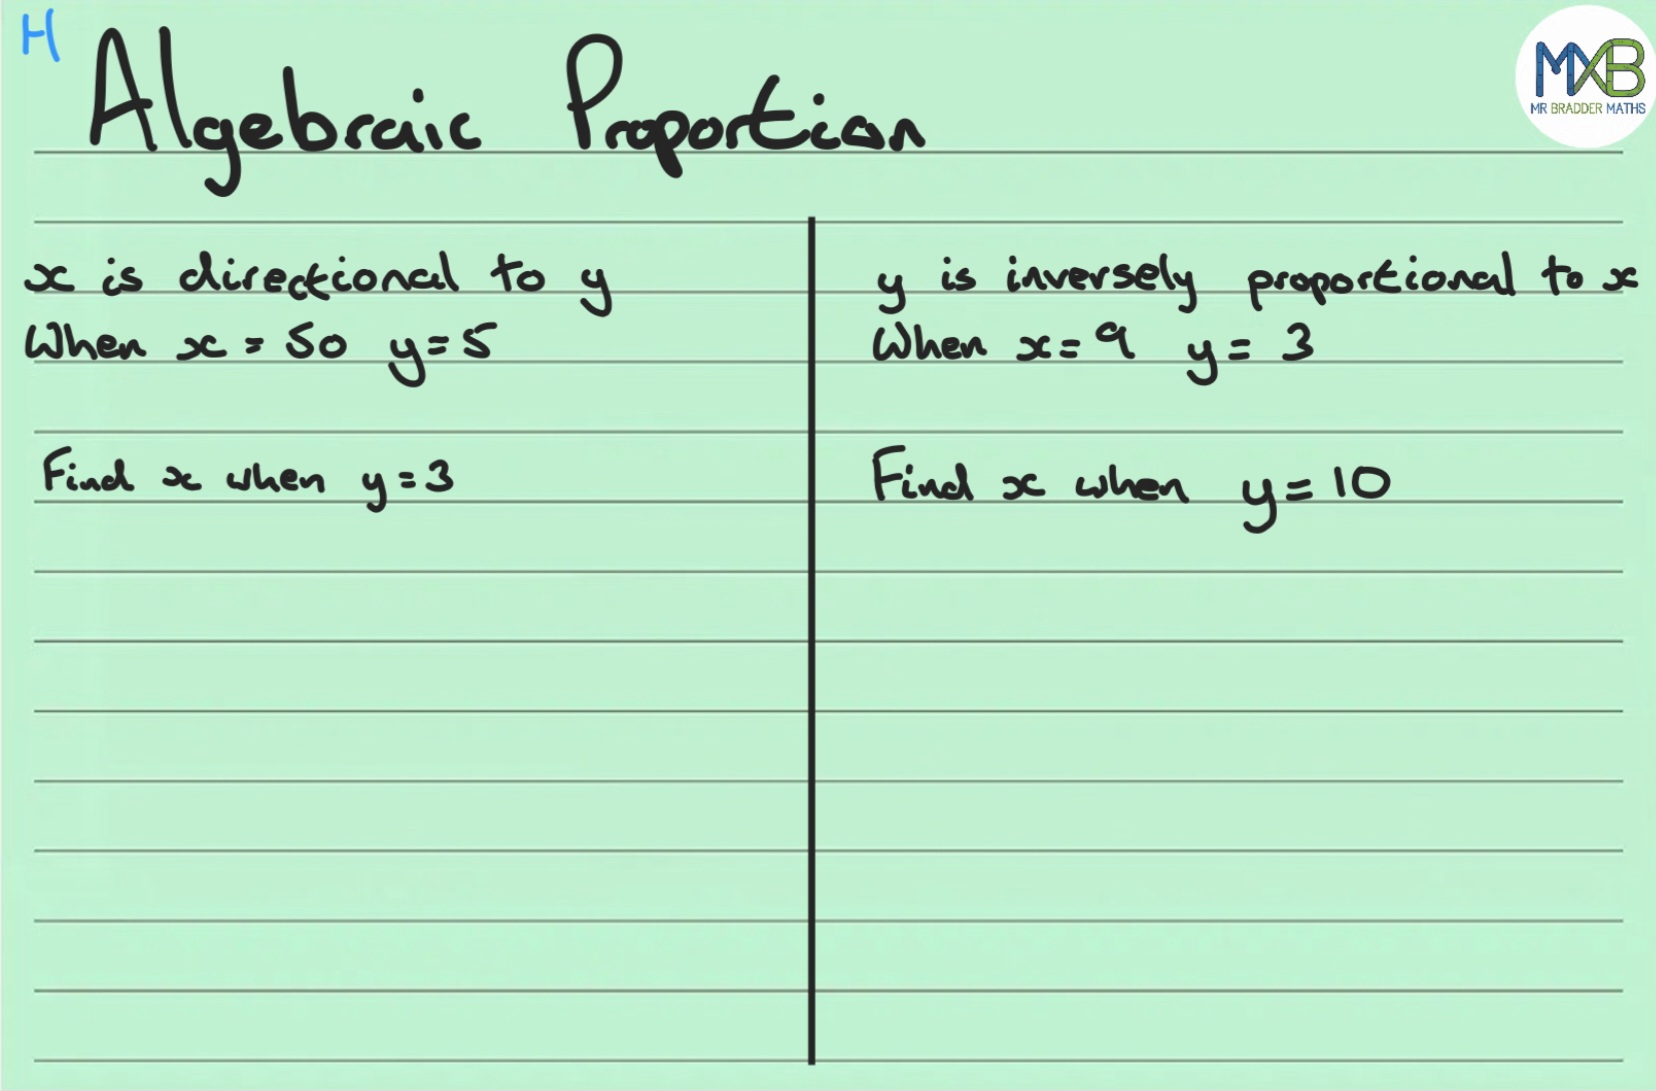 H
Algebraic Proportion
MXB
MR BRADDER MATHS
x is directional to y
When x = 50 y = 5
Find x when y = 3
y is inversely proportional to x
When x = 9 y = 3
Find x when y = 10